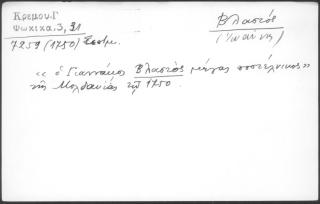 Κρέμου. Γ
Φωκικα. 3, 21
7259 (1750) Σεπτμ.
Βλαστός
(Ἰωάννης)
«ὁ Γιαννάκος Βλαστὸς μέγας ποστέλνικος»
τῆς Μολδαυίας τῷ 1750.